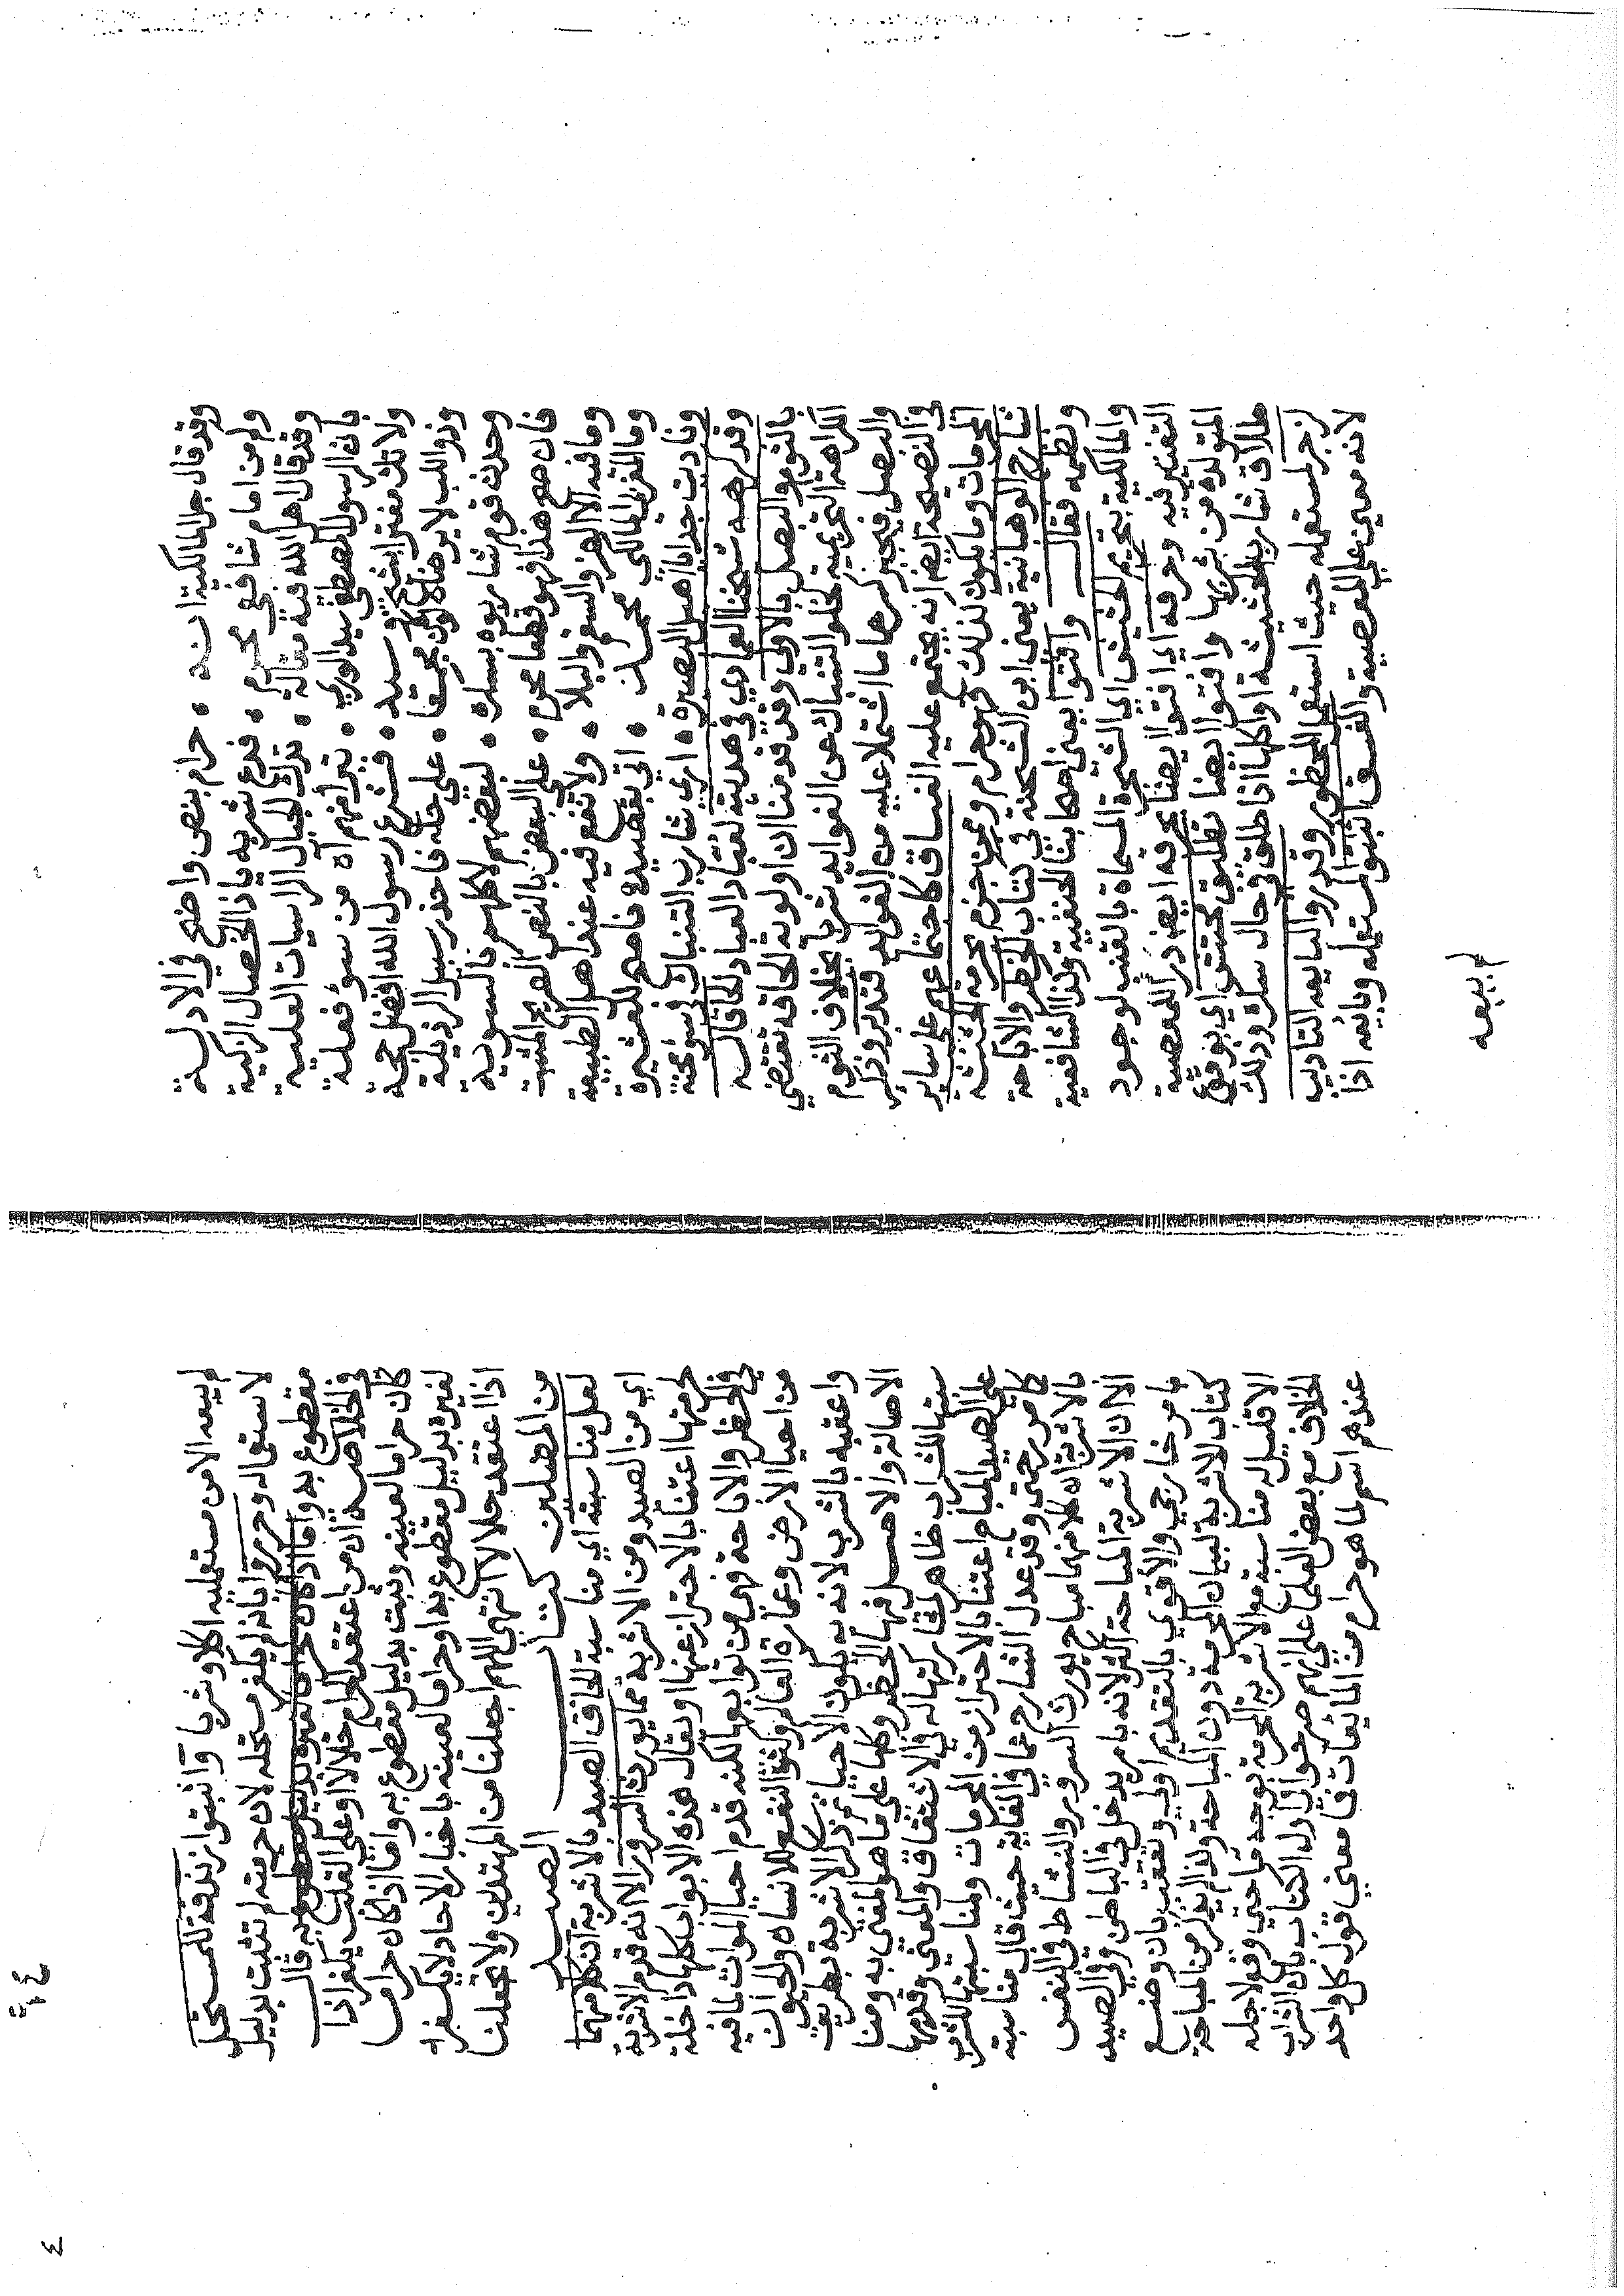 وقد قال جل المالكية انه • حرام بنص واضح في الادلة
ولم من امام شافعي محرم • فدع شربه ياذا الخصال الزكية
وقد قال هل الله فيه مقالة • تدك الجبال الراسيات العلية
بان الرسول المصطفى سيد الورى • تبرأ منهم آه من سوء فعلة
ولا تك مغترا بشخص وسيد • فشرع رسول الله افضل حجة
وذو اللب لا يرضى لكون محمقا • على حله فاحذر سبيل الرذيلة
وحدث قوم شاربوه بسكره • لبعضهم لا كلهم بالسوية
فان صح هذا فهو قطعا محرم • على البعض بالنص الصريح المثبت
وما فيه الا الهزو السقم والبلا • ولا نفع فيه عند اهل الطبيعة
وما المقري المالكي محمد • اتى بقصيد فاصح للعشيرة
وناديت جدا يا اهيل البصرة • ارى شارب التنباك في سوء محنة
وقد كرهه شيخنا العمادي في هديته لعباد العباد لحاقا له
بالثوم والبصل بالاولى وقد قدمنا ان اولوية الحاقه تقتضي
الكراهة التحريمية لخلو التنباك عن الفوايد شربا بخلاف الثوم
والبصل فيجبر كرههما ما اشتملا عليه من الفوايد فتدبر وذكر
في النصيحة ايضا انه يجتمع عليه الفساق كاجتماعهم على ساير
المحرمات وما يكون لذلك فهو حرام وممن جزم بحرمة الحشيشة
شارح الوهبانية يعني ابن الشحنة في كتاب الحظر والاباحة
ونظمه فقال وافتوا يعني اصحابنا الحنفية وكذا الشافعية
والمالكية بتحريم الحشيش اي الشجرة المسماة بالقنب لوجود
التفتير فيه وحرقه اي افتوا ايضا بحرقه ايضا زجر اللمعصية
المتولدة من شربها وافتوا ايضا تطليق محتش اي بوقوع
طلاق شارب الحشيشة او اكلها اذا طلق في حال سكره وذلك
لزجر لمستعمله حيث استعمل المحظور وقدروا لبايعه التاديب
لانه معين على المعصية والفسق اثبتوا لمستعمله وبائعه اذا
لم يبعه
لم يبعه الا من مستعمليه اكلا وشربا واثبتوا زندقة للمستحل
لاستعماله وحرروا بانه لم يكفر مستحله لان حرمته لم تثبت بدليل
مقطوع به واما اذا كان حراما لغيره بدليل مقطوع به قال
في الخلاصة ان من اعتقد الحرام حلالا او على القلب يكفر اذا
كان حراما لعينه وثبت بدليل مقطوع به واما اذا كان حراما
لغيره بدليل مقطوع به او حراما لعينه باخبار الاحاد لا يكفر
اذا اعتقد حلالا انتهى اللهم اجعلنا من المهتدين ولا تجعلنا
من المضلين كتاب الصيد
لعل مناسبته اي مناسبة الحاق الصيد بالاشربة ان كلا منهما
اي من الصيد ومن الاشربة مما يورث السرور الا انه قدم الاشربة
لحرمتها اعتنا بالاحتراز عنها ويقال هذه الابواب كلها داخلة
في الحظر والاباحة فهي من توابعها لكنه قدم احيا الموات لما فيه
من احيا الارض وعمارة العالم وكثرة النفع للانسان والحيوان
واعقبه بالشرب لانه به يكون الاحيا ثم ذكر الاشربة بطريق
الاصالة والاصل فيها الحظر وكلها على ما هو المفتى به ومنا
سبتها للشراب ظاهر لمشاركتها له في الاشتقاق والمعنى وقدمها
على الصيد المباح اعتنا بالاحتراز من المحرمات ومناسبتها للشر
كما مر رحمتي وقد عدل الشارح عما في الغاية حيث قال مناسبة
بالاشربة ان كلا منهما مباح يورث السرور والنشاط في النفس
الا ان الاشربة المباحة اكثر لانه بامر يدخل في الباطن وفي الصيد
بامر خارجي والاقوى بالتقديم اولى وتعقب بان وضع
كتاب الاشربة لبيان المحرمة دون المباحة ولذا لم يذكر من المباحة
الا قليل له مناسبة مع الاشربة المحرمة بوجه ما حتى وقع لاجله
الخلاف مع بعض العلماء على انهم صرحوا في اول الكتاب بان الشراب
عندهم اسم لما هو حرام من المائعات فما معنى قول كل واحد